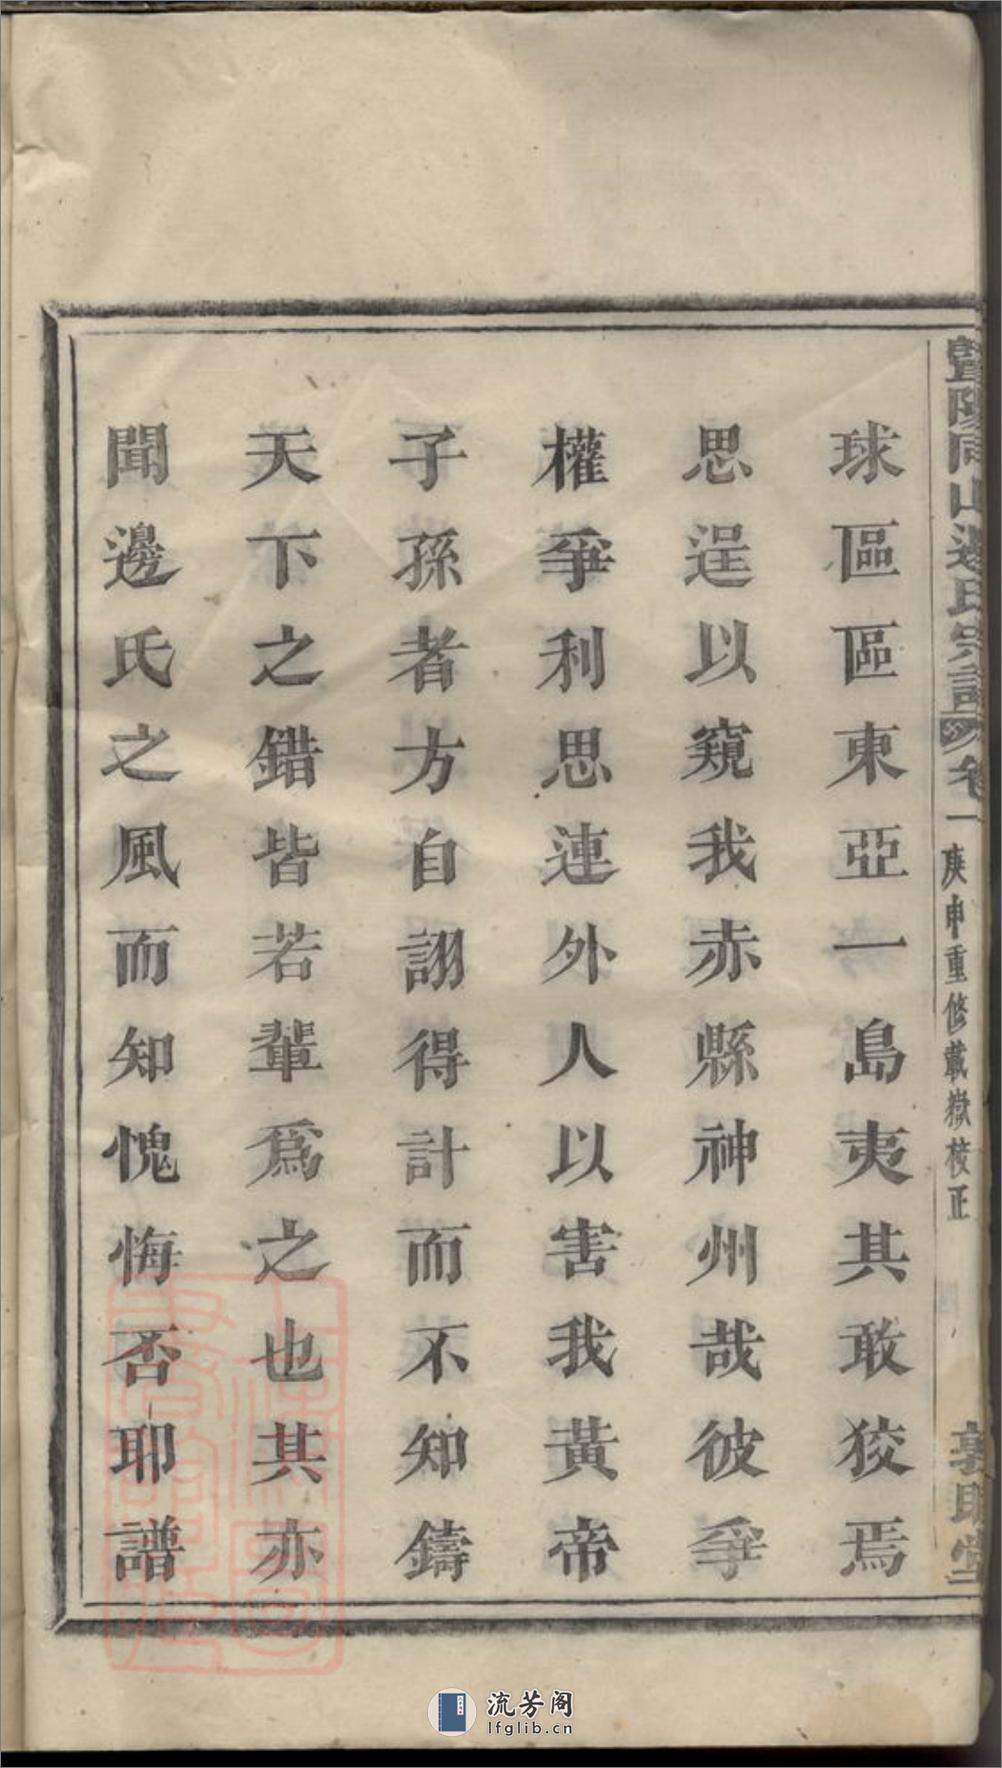 暨陽同山邊氏宗譜 卷一 庚申重修載嶽校正 敦睦堂
球區區東亞一島夷其敢狡焉
思逞以窺我赤縣神州哉彼爭
權爭利思連外人以害我黃帝
子孫者方自詡得計而不知鑄
天下之錯皆若輩爲之也其亦
聞邊氏之風而知愧悔否耶譜
流芳阁
lfglib.cn